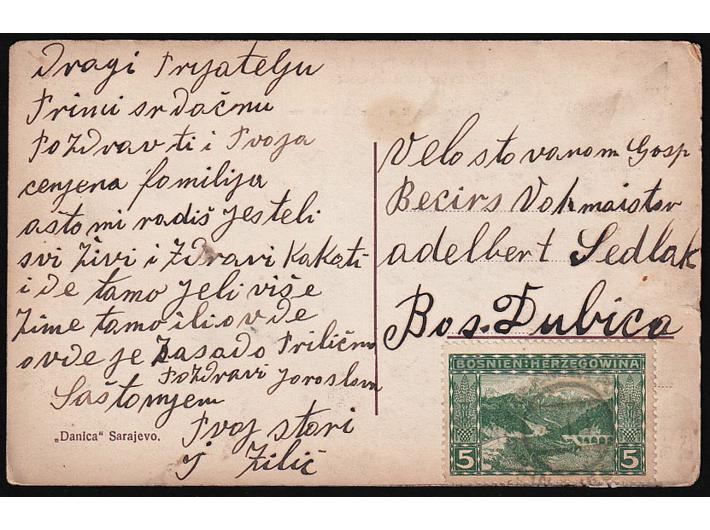 Dragi Prjatelju
Primi srdačnu
Pozdrav ti i Tvoja
cenjena familija
ašto mi radiš jesteli
svi živi i Zdravi Kakoti
ide tamo jeli više
Zime tamo iliovde
ovde je Zasado Prilično
Pozdravi Joroslava
Saštovnjem
Tvoj stari
J Zilić
„Danica“ Sarajevo.
Velo stovanom Gosp
Becirs Vohmaistor
adelbert Sedlak
Bos. Dubica
BOSNIEN-HERZEGOWINA
5 5